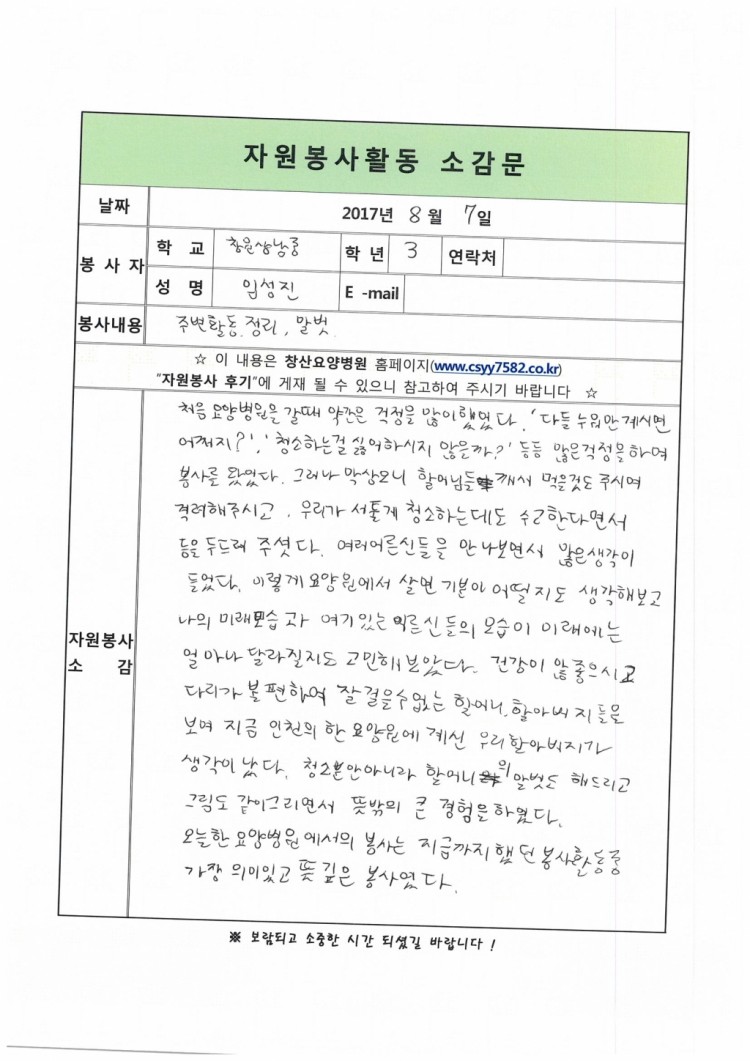 자원봉사활동 소감문
날짜 2017년 8월 7일
봉사자 학교 창원상남중 학년 3 연락처
성명 임성진 E-mail
봉사내용 주변활동.정리, 말벗.
☆ 이 내용은 창산요양병원 홈페이지(www.csyy7582.co.kr)
"자원봉사 후기"에 게재 될 수 있으니 참고하여 주시기 바랍니다 ☆
자원봉사 소감
처음 요양병원을 갈때 약간은 걱정을 많이했었다. '다들 누워만 계시면
어쩌지?', '청소하는걸 싫어하시지 않은까?' 등등 많은걱정을하며
봉사를 왔었다. 그러나 막상오니 할머님들께서 먹을것도 주시며
격려해주시고, 우리가 서툴게 청소하는데도 수고한다면서
등을 두드려 주셧다. 여러어른신들을 만나보면서 많은생각이
들었다. 이렇게 요양원에서 살면 기분이 어떨지도 생각해보고
나의 미래모습과 여기있는 어른신들의 모습이 미래에는
얼마나 달라질지도 고민해 보았다. 건강이 않좋으시고
다리가 불편하여 잘 걸을수없는 할머니, 할아버지들을
보며 지금 인천의 한 요양원에 계신 우리할아버지가
생각이 났다. 청소뿐만아니라 할머니의 말벗도 해드리고
그림도 같이그리면서 뜻밖의 큰 경험을하였다.
오늘한 요양병원에서의 봉사는 지금까지했던 봉사활동중
가장 의미있고 뜻 깊은 봉사였다.
※ 보람되고 소중한 시간 되셨길 바랍니다 !